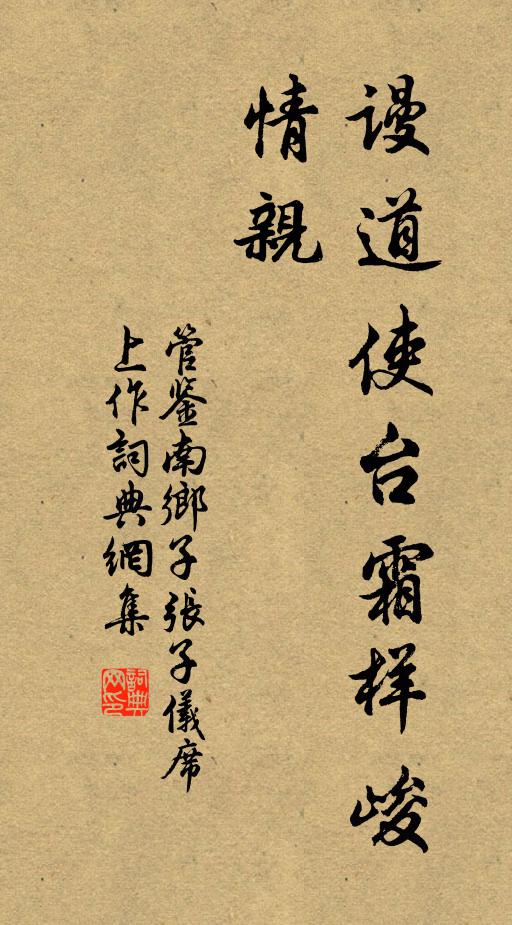 谩道使台霜样峻
情親
管鉴南鄉子張子儀席
上作詞典網集
詞典网印